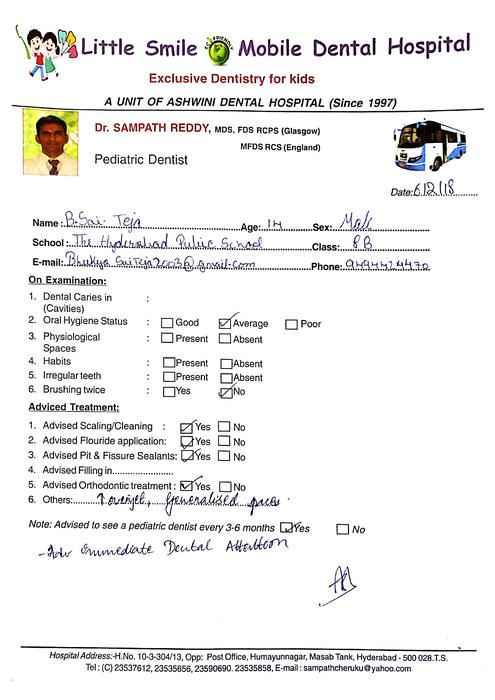 Little Smile ECO FRIENDLY Mobile Dental Hospital
Exclusive Dentistry for kids
A UNIT OF ASHWINI DENTAL HOSPITAL (Since 1997)
Dr. SAMPATH REDDY, MDS, FDS RCPS (Glasgow)
MFDS RCS (England)
Pediatric Dentist
Date: 6/2/18
Name: B. Sai Teja Age: 14 Sex: Male
School: The Hyderabad Public School Class: 8B
E-mail: BhukyaSaiTeja2003@gmail.com Phone:
On Examination:
1. Dental Caries in :
(Cavities)
2. Oral Hygiene Status : Good Average Poor
3. Physiological : Present Absent
Spaces
4. Habits : Present Absent
5. Irregular teeth : Present Absent
6. Brushing twice : Yes No
Adviced Treatment:
1. Advised Scaling/Cleaning : Yes No
2. Advised Flouride application: Yes No
3. Advised Pit & Fissure Sealants: Yes No
4. Advised Filling in....................
5. Advised Orthodontic treatment : Yes No
6. Others: ↑ overjet, Generalised spaces
Note: Advised to see a pediatric dentist every 3-6 months Yes No
Immediate Dental Attention
Hospital Address:-H.No. 10-3-304/13, Opp: Post Office, Humayunnagar, Masab Tank, Hyderabad - 500 028.T.S.
Tel : (C) 23537612, 23535656, 23590690. 23535858, E-mail : sampathcheruku@yahoo.com